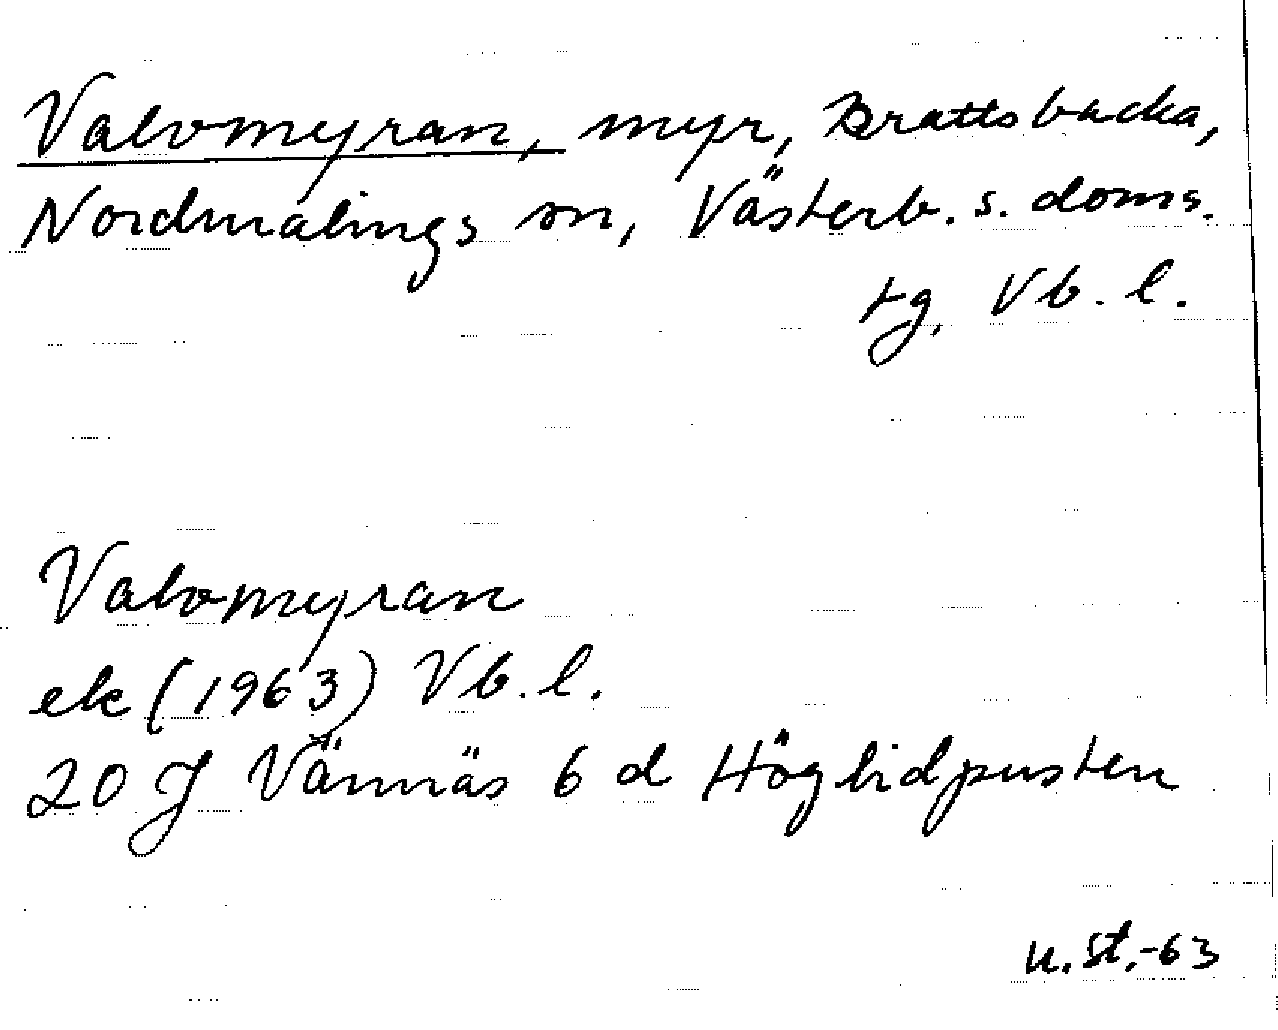 Valvomyran, myr, Brattsbacka,
Nordmalings sn, Västerb. s. doms.
tg, Vb. l.
Valvomyran
ek (1963) Vb. l.
20 J Vännäs 6 d Höglidpusten
u.st.-63